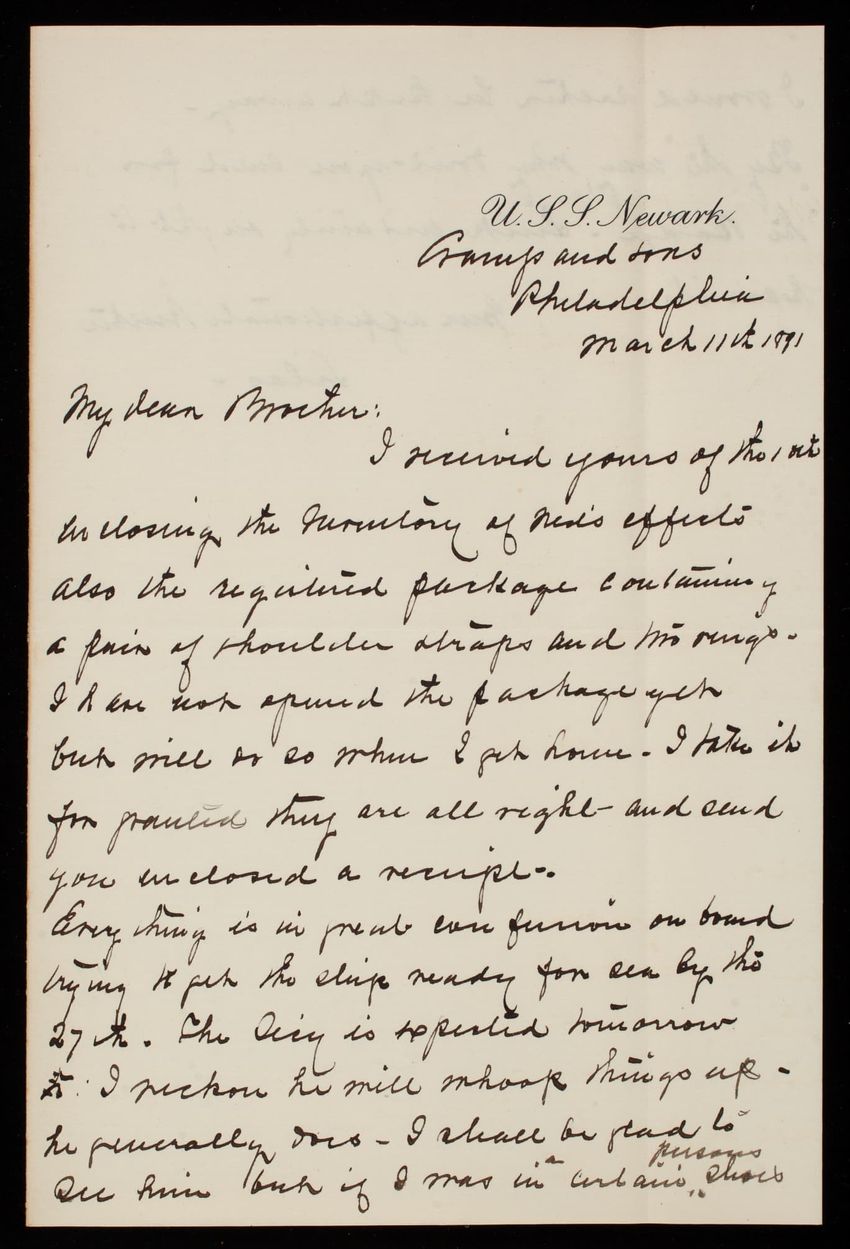 U.S.S. Newark.
Cramp and Sons
Philadelphia
March 11th 1891
My dear Brother:
I received yours of the 10th
enclosing the Inventory of Ned's effects
also the registered package containing
a pair of shoulder straps and two rings.
I have not opened the package yet
but will do so when I get home - I take it
for granted they are all right - and send
you enclosed a receipt -.
Every thing is in great confusion on board
trying to get the ship ready for sea by the
27th. The Secy is expected tomorrow
I reckon he will whoop things up -
he generally does - I shall be glad to
see him but if I was in a certain persons shoes